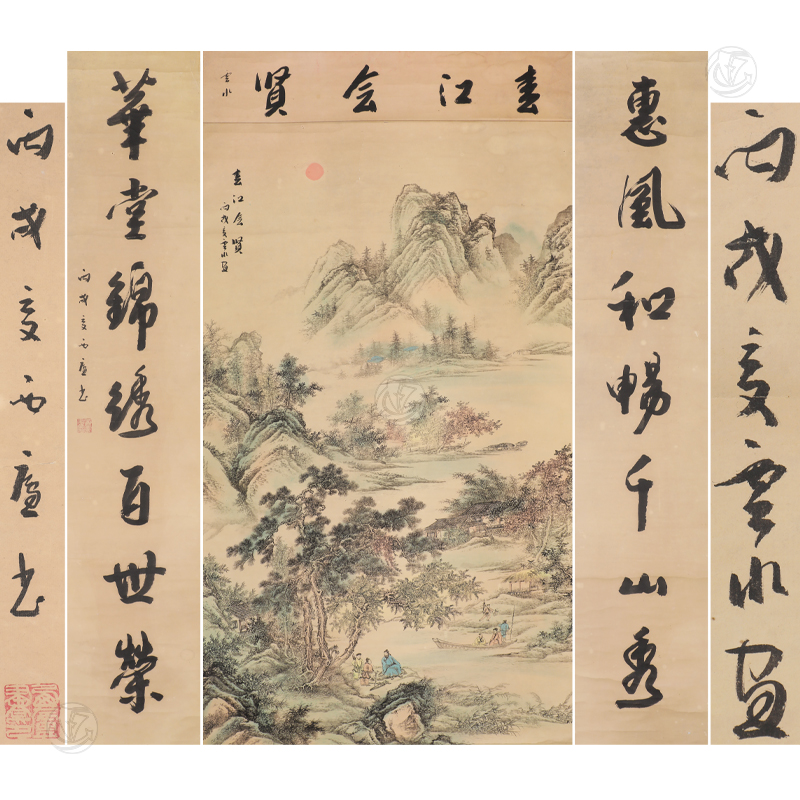 丙戌夏雲水画
惠風和暢千山秀
春江会賢
雲水
春江会賢
丙戌夏雲水画
華堂錦綉百世榮
丙戌夏西廬书
丙戌夏西廬书